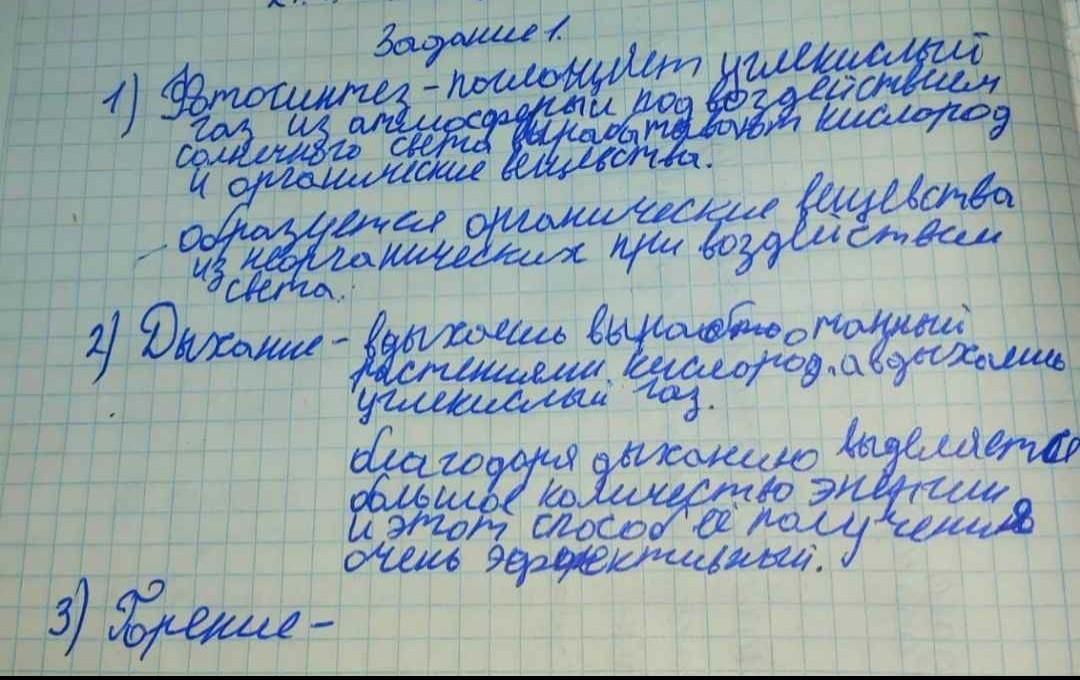 Задание 1.
1) Фотосинтез - поглощяет углекислый
газ из атмосферный под воздействием
солнечного света вырабатывают кислород
и органические вещевства.
- образуется органические вещевства
из неорганических при воздействием
света.
2) Дыхание - вдыхаешь
растениями кислород, а вдыхаешь
углекислый газ.
благодаря дыханию выделяется
большое количество энергии
и этот способ её получения
очень эффективный.
3) Горение -